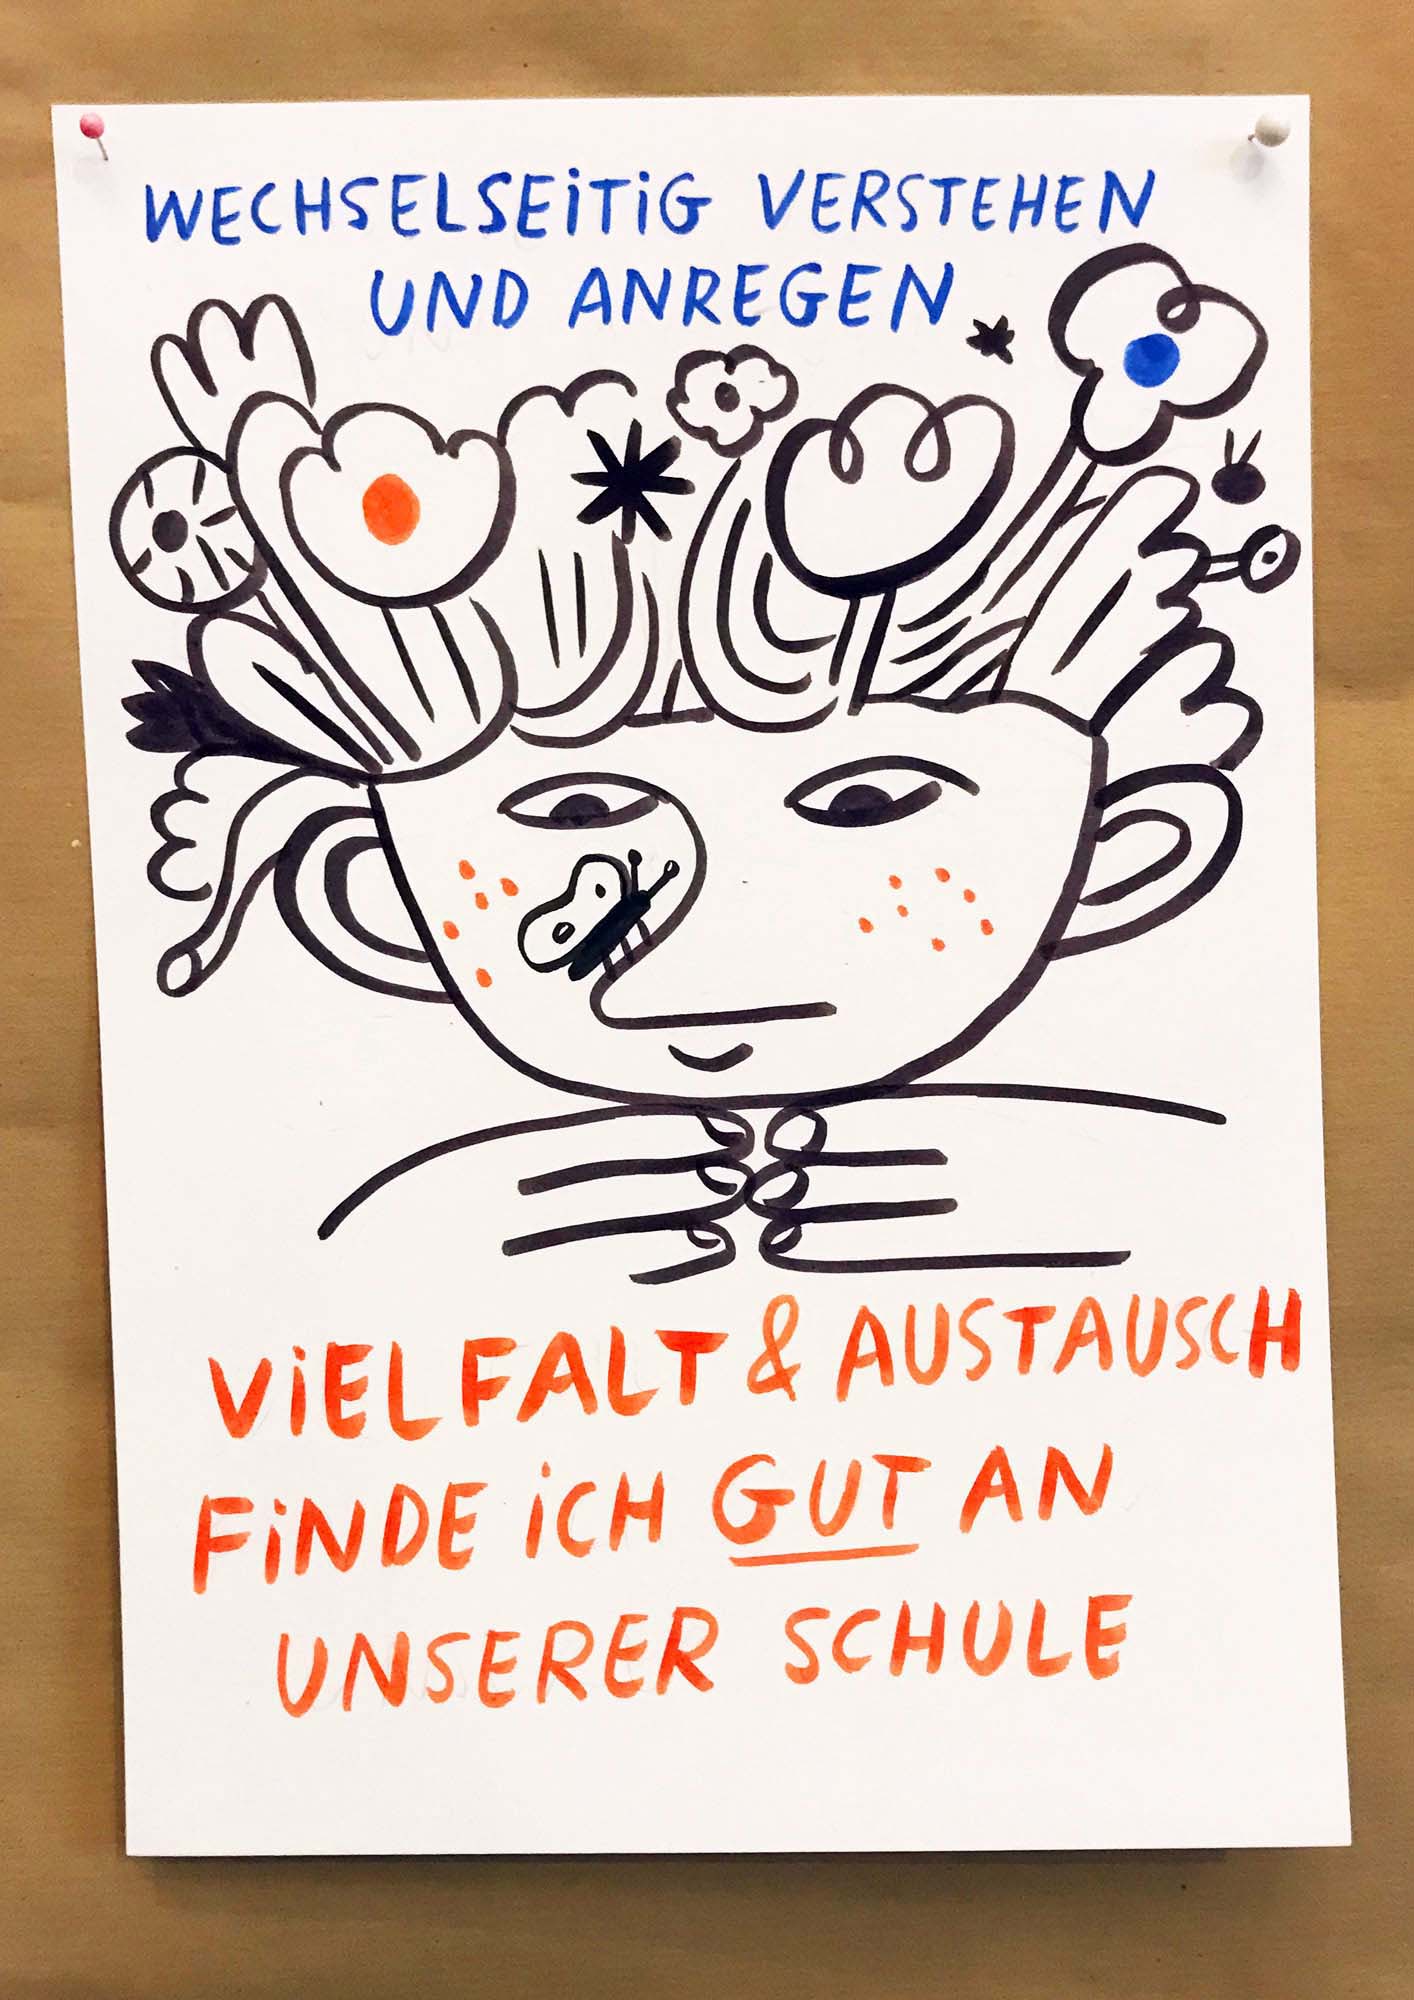 WECHSELSEiTiG VERSTEHEN
UND ANREGEN
ViELFALT & AUSTAUSCH
FiNDE iCH GUT AN
UNSERER SCHULE